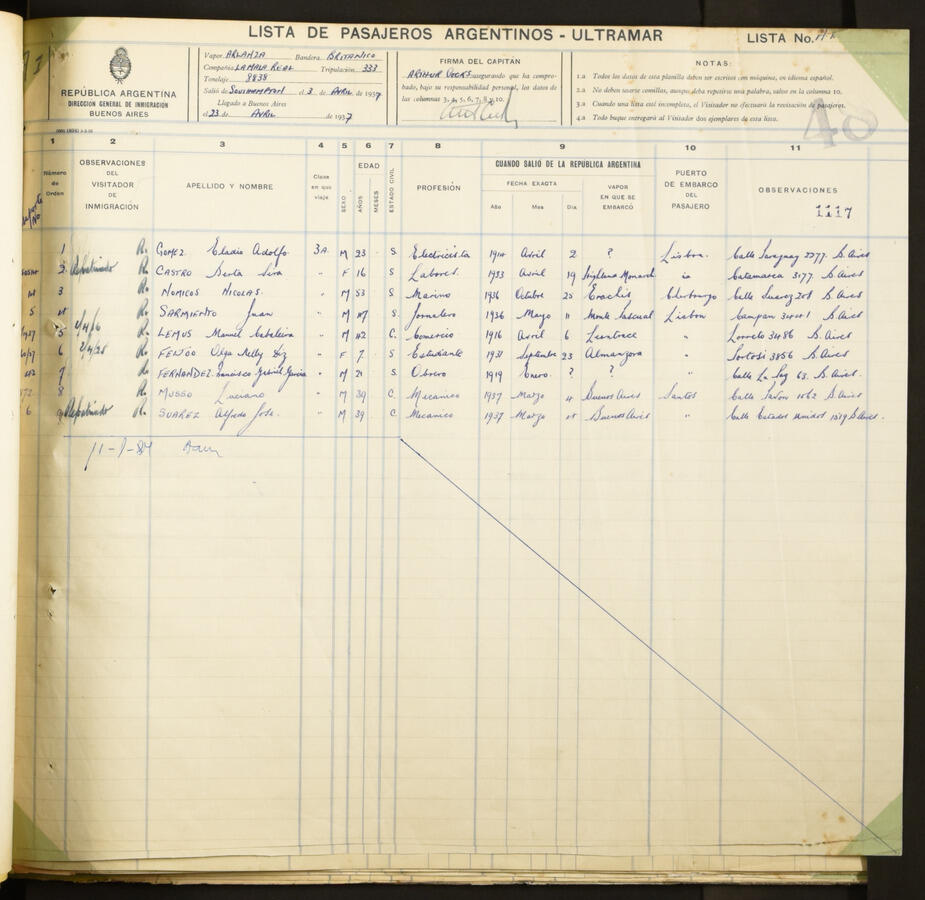 LISTA DE PASAJEROS ARGENTINOS - ULTRAMAR
LISTA No.
REPÚBLICA ARGENTINA
DIRECCION GENERAL DE INMIGRACIÓN
BUENOS AIRES
Vapor ARLANZA Bandera BRITANICO
Compañía LA MALA REAL Tripulación 333
Tonelaje 8838
Salió de SOUTHAMPTON el 3 de AVRIL de 1937
Llegado a Buenos Aires
el 23 de AVRIL de 1937
FIRMA DEL CAPITAN
ARTHUR COCKS asegurando que ha compro-
bado, bajo su responsabilidad personal, los datos de
las columnas 3, 4, 5, 6, 7, 8 y 10.
NOTAS:
1.a Todos los datos de esta planilla deben ser escritos con máquina, en idioma español.
2.a No deben usarse comillas, aunque deba repetirse una palabra, salvo en la columna 10.
3.a Cuando una lista esté incompleta, el Visitador no efectuará la revisación de pasajeros.
4.a Todo buque entregará al Visitador dos ejemplares de esta lista.
40
1 2 3 4 5 6 7 8 9 10 11
Número de Orden
OBSERVACIONES DEL VISITADOR DE INMIGRACIÓN
APELLIDO Y NOMBRE
Clase en que viaje
SEXO
EDAD
AÑOS
MESES
ESTADO CIVIL
PROFESIÓN
CUANDO SALIÓ DE LA REPÚBLICA ARGENTINA
FECHA EXACTA
Año Mes Día
VAPOR EN QUE SE EMBARCÓ
PUERTO DE EMBARCO DEL PASAJERO
OBSERVACIONES
1117
1 R. GOMEZ Eladio Adolfo 3A M 23 S. Electricista Avril 2 ? Lisboa Calle Paraguay B. Aires
2 Repatriado R. CASTRO Berta " F 16 S. Labores 1933 Avril 19 Highland Monarch Catamarca 3177 B. Aires
3 R. NOMICOS NICOLAS " M 53 S Marino 1936 Octubre 25 Cherburgo Calle Suarez B. Aires
R. SARMIENTO Juan " M S. Jornalero 1936 Mayo 11 Monte Pascual Lisbon B. Aires
5 R. LEMUS Manuel " M C. Comercio 1916 Avril 6 " Loreto 3486 B. Aires
6 R. Olga Nelly " F 7 S Estudiante 1931 Septembre 23 Almanzora " 3856 B. Aires
7 R. FERNANDEZ Francisco Gabriel Garcia " M 21 S. Obrero 1919 Enero ? ? " Calle La Paz 63. B. Aires
8 R. MUSSO Luciano " M 39 C. Mecanico 1937 Marzo Buenos Aires Santos Calle B. Aires
9 Repatriado R. SUAREZ Alfredo Jose " M 39 C Mecanico 1937 Marzo Buenos Aires " Calle Estados Unidos B. Aires